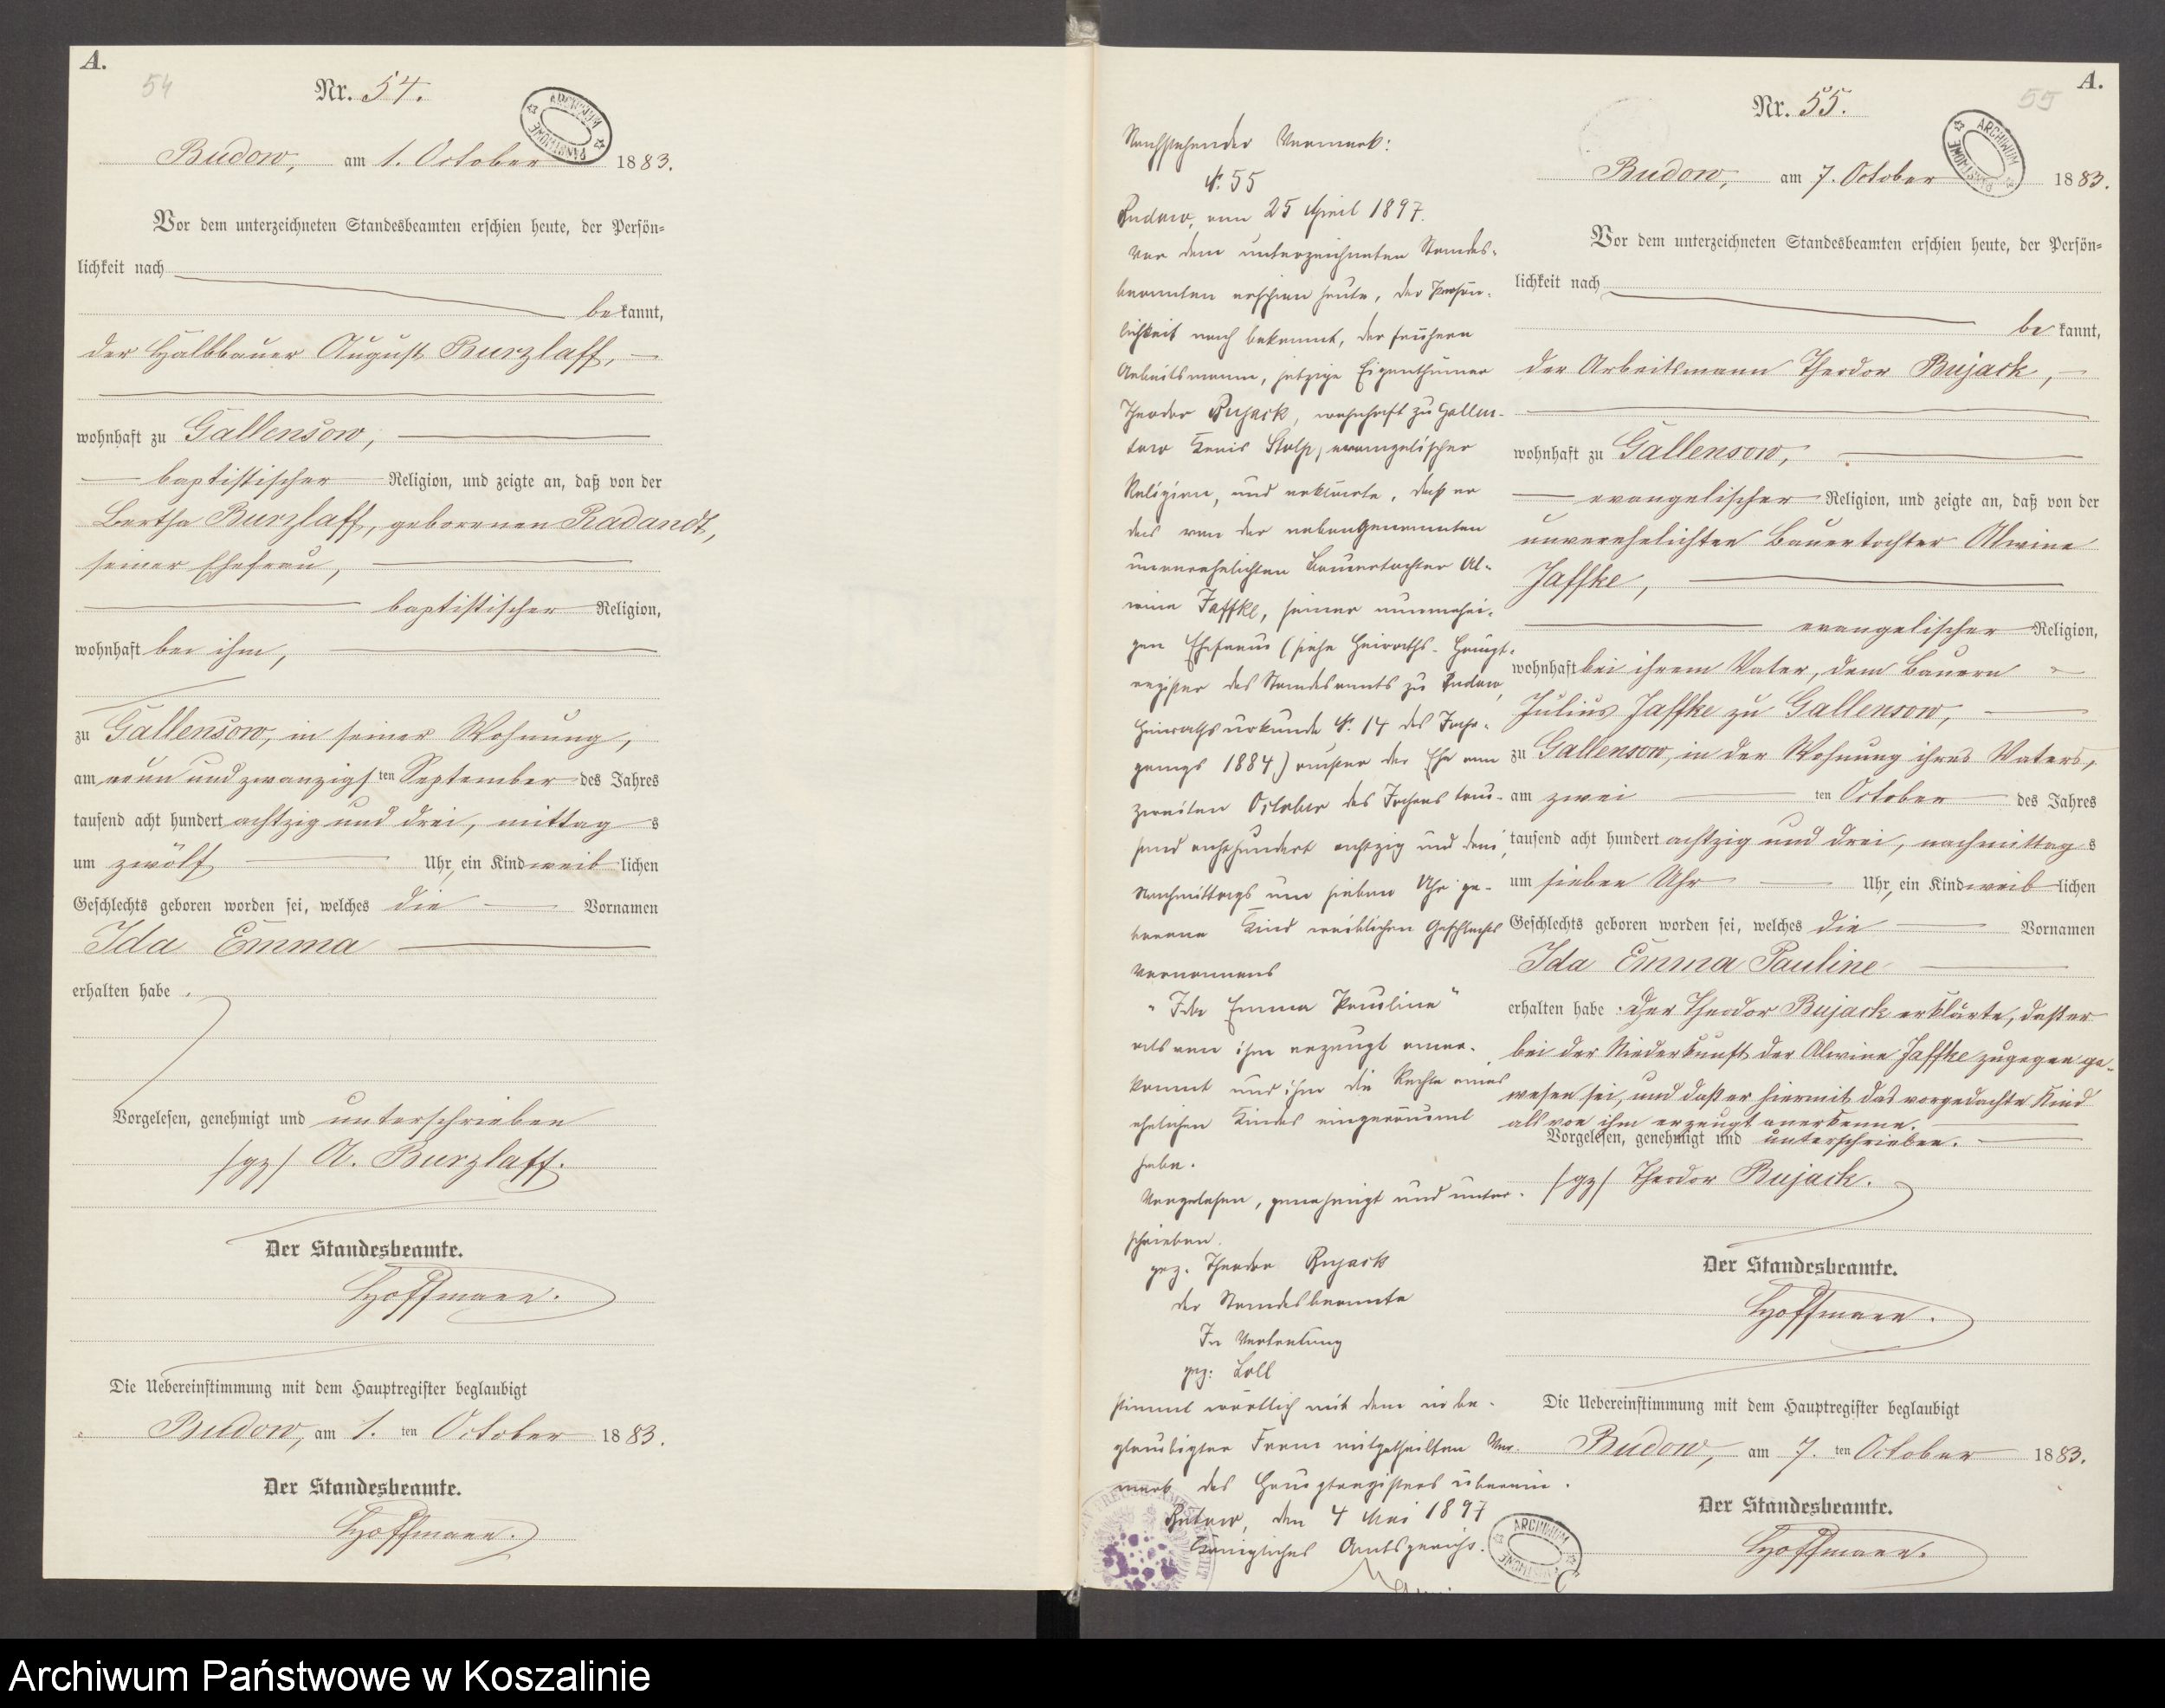 A.
54
Nr. 54.
ARCHIWUM PAŃSTWOWE
Budow, am 1. October 1883.
Vor dem unterzeichneten Standesbeamten erschien heute, der Persön-
lichkeit nach
bekannt,
der Halbbauer August Burzlaff,
wohnhaft zu Gallensow,
baptistischer Religion, und zeigte an, daß von der
Bertha Burzlaff, geborenen Radandt,
seiner Ehefrau,
baptistischer Religion,
wohnhaft bei ihm,
zu Gallensow, in seiner Wohnung,
am neun und zwanzigsten September des Jahres
tausend acht hundert achtzig und drei, mittags
um zwölf Uhr, ein Kind weiblichen
Geschlechts geboren worden sei, welches die Vornamen
Ida Emma
erhalten habe.
Vorgelesen, genehmigt und unterschrieben
/gz/ A. Burzlaff.
Der Standesbeamte.
Hoffmann.
Die Uebereinstimmung mit dem Hauptregister beglaubigt
Budow, am 1. ten October 1883.
Der Standesbeamte.
Hoffmann.
Nachstehender Vermerk:
N. 55
Budow, am 25 April 1897.
Vor dem unterzeichneten Standes-
beamten erschien heute, der Persön-
lichkeit nach bekannt, der frühere
Arbeitsmann, jetzige Eigenthümer
Theodor Bujack, wohnhaft zu Gallen-
sow Kreis Stolp, evangelischer
Religion, und erklärte, daß er
das von der nebengenannten
unverehelichten Bauertochter Al-
wine Jaffke, seiner nunmehri-
gen Ehefrau (siehe Heiraths-Haupt-
register des Standesamts zu Budow,
Heirathsurkunde N. 14 des Jahr-
gangs 1884) außer der Ehe am
zweiten October des Jahres tau-
send achthundert achtzig und drei,
Nachmittags um sieben Uhr ge-
borene Kind weiblichen Geschlechts
Vornamens
"Ida Emma Pauline"
als von ihm erzeugt aner-
kannt und ihm die Rechte eines
ehelichen Kindes eingeräumt
habe.
Vorgelesen, genehmigt und unter-
schrieben.
gez. Theodor Bujack
der Standesbeamte
In Vertretung
gez: Loll
stimmt wörtlich mit dem in be-
glaubigter Form mitgetheilten Ver-
merk des Hauptregisters überein.
den 4 Mai 1897
Königliches Amtsgericht.
ARCHIWUM PAŃSTWOWE
A.
55
Nr. 55.
ARCHIWUM PAŃSTWOWE
Budow, am 7. October 1883.
Vor dem unterzeichneten Standesbeamten erschien heute, der Persön-
lichkeit nach
bekannt,
der Arbeitsmann Theodor Bujack,
wohnhaft zu Gallensow,
evangelischer Religion, und zeigte an, daß von der
unverehelichten Bauertochter Alwine
Jaffke,
evangelischer Religion,
wohnhaft bei ihrem Vater, dem Bauern
Julius Jaffke zu Gallensow,
zu Gallensow, in der Wohnung ihres Vaters,
am zwei ten October des Jahres
tausend acht hundert achtzig und drei, nachmittags
um sieben Uhr Uhr, ein Kind weiblichen
Geschlechts geboren worden sei, welches die Vornamen
Ida Emma Pauline
erhalten habe. Der Theodor Bujack erklärte, daß er
bei der Niederkunft der Alwine Jaffke zugegen ge-
wesen sei, und daß er hiermit das vorgedachte Kind
als von ihm erzeugt anerkenne.
Vorgelesen, genehmigt und unterschrieben.
/gz/ Theodor Bujack.
Der Standesbeamte.
Hoffmann.
Die Uebereinstimmung mit dem Hauptregister beglaubigt
Budow, am 7. ten October 1883.
Der Standesbeamte.
Hoffmann.
Archiwum Państwowe w Koszalinie